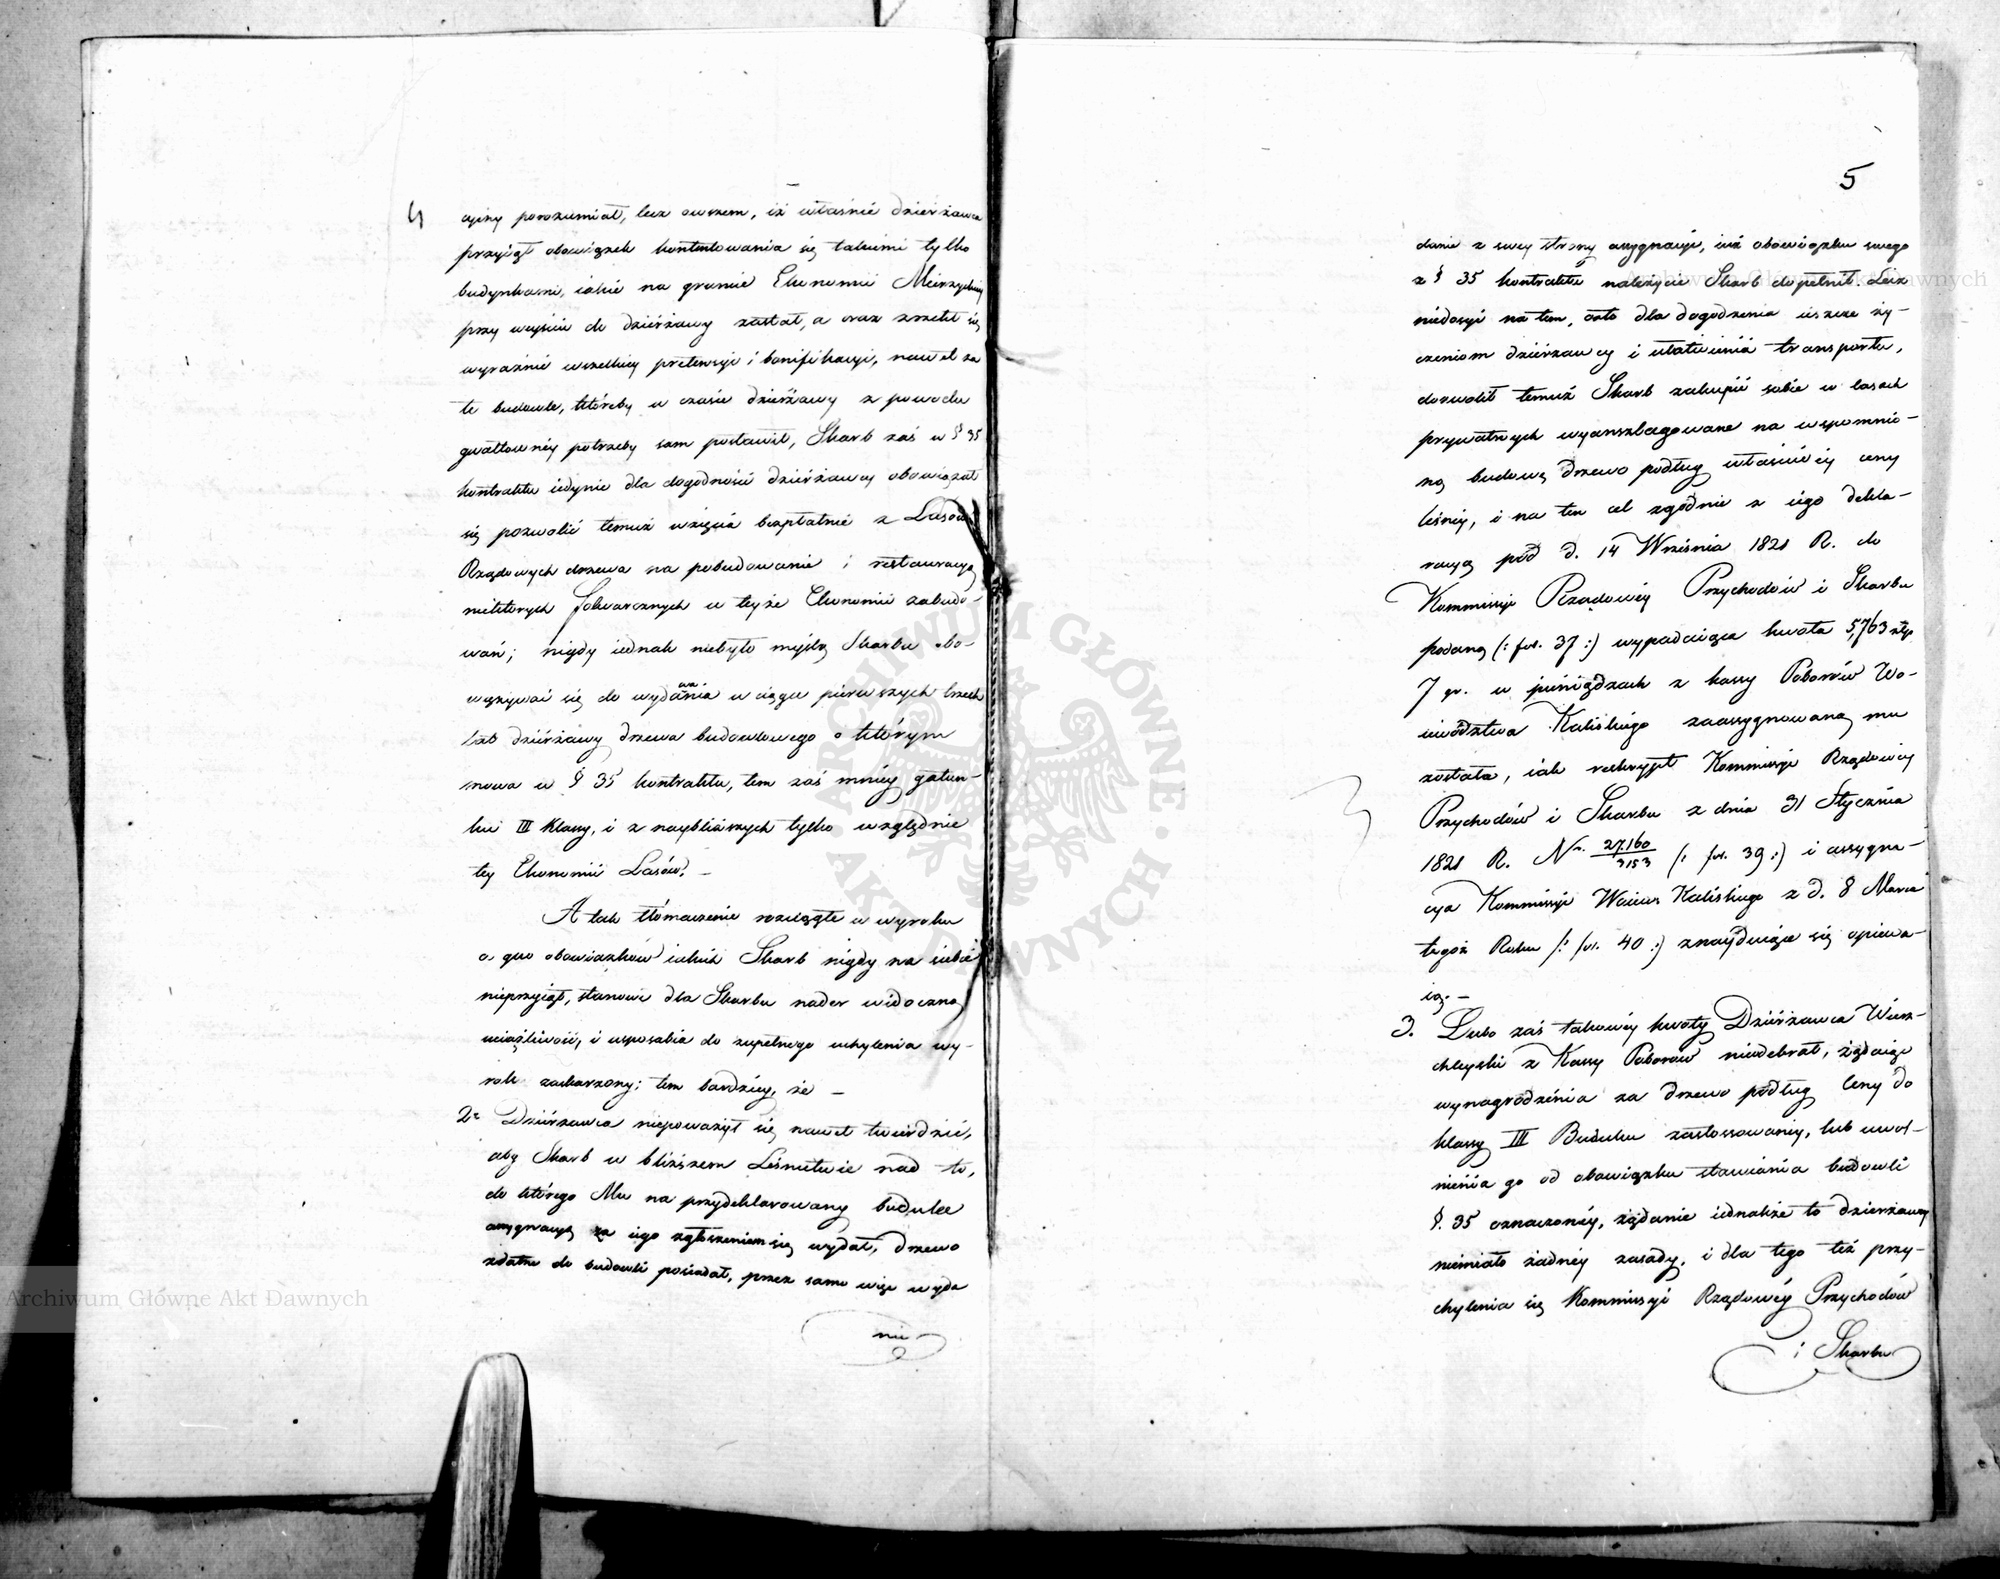 4
cyiny porozumiał, lecz owszem, iż właśnie dzierżawca
przyiął obowiązek kontentowania się takiemi tylko
budynkami, iakie na gruncie Ekonomii Mierzyckiey
przy weyściu do dzierżawy zastał, a oraz zrzekł się
wyraźnie wszelkiey pretensyi i bonifikacyi, nawet za
te budowle, któreby w czasie dzierżawy z powodu
gwałtowney potrzeby sam postawił, Skarb zaś w § 35
kontraktu iedynie dla dogodności dzierżawcy obowiązał
się pozwolić temuż wzięcia bezpłatnie z Lasów
Rządowych drzewa na pobudowanie i restauracyą
niektórych folwarcznych w teyże Ekonomii zabudo-
wań; nigdy iednak niebyło myślą Skarbu obo-
wiązywać się do wydawania w ciągu pierwszych trzech
lat dzierżawy drzewa budowlowego o którym
mowa w § 35 kontraktu, tem zaś mniey gatun-
ku III klassy, i z naybliższych tylko względnie
tey Ekonomii Lasów. –
A tak tłómaczenie rozciągłe w wyroku
a quo obowiązków iakich Skarb nigdy na siebie
nieprzyiął, stanowi dla Skarbu nader widoczną
uciążliwość, i usposabia do zupełnego uchylenia wy-
rok zaskarżony; tem bardziey, że –
2° Dzierżawca niepoważył się nawet twierdzić,
aby Skarb w bliższem Leśnictwie nad to,
do którego Mu na przydeklarowany budulec
assygnacyą za iego zgłoszeniem się wydał, drzewo
zdatne do budowli posiadał, przez samo więc wyda
nie
5
danie z swey strony assygnacyi, iuż obowiązku swego
z § 35 kontraktu należycie Skarb dopełnił. Lecz
niedosyć na tem, oto dla dogodzenia ieszcze ży-
czeniom dzierżawcy i ułatwienia transportu,
dozwolił temuż Skarb zakupić sobie w lasach
prywatnych wyanszlagowane na wspomnio-
ną budowę drzewo podług właściwey ceny
leśney, i na ten cel zgodnie z iego dekla-
racyą pod d. 14 Września 1821 R. do
Kommissyi Rządowey Przychodów i Skarbu
podaną (: fol. 37 :) wypadaiąca kwota 5,763 złp
7 gr. w pieniądzach z kassy Poborów Wo-
iewództwa Kaliskiego zaassygnowaną mu
została, iak reskrypt Kommissyi Rządowey
Przychodów i Skarbu z dnia 31 Stycznia
1821 R. Nr. 27160/3153 (: fol. 39 :) i assygna-
cya Kommissyi Woiew: Kaliskiego z d. 8 Marca
tegoż Roku (: fol. 40 :) znayduiące się opiewa-
ią. –
3. Lubo zaś takowey kwoty Dzierżawca Wierz-
chleyski z Kassy Poborów nieodebrał, żądaiąc
wynagrodzenia za drzewo podług Ceny do
klassy III Budulcu zastossowaney, lub uwol-
nienia go od obowiązku stawiania budowli
§. 35 oznaczoney, żądanie iednakże to dzierżawcy
niemiało żadney zasady, i dla tego też przy-
chylenia się Kommissyi Rządowey Przychodów
i Skarbu
ARCHIWUM GŁÓWNE AKT DAWNYCH
Archiwum Główne Akt Dawnych
Archiwum Główne Akt Dawnych